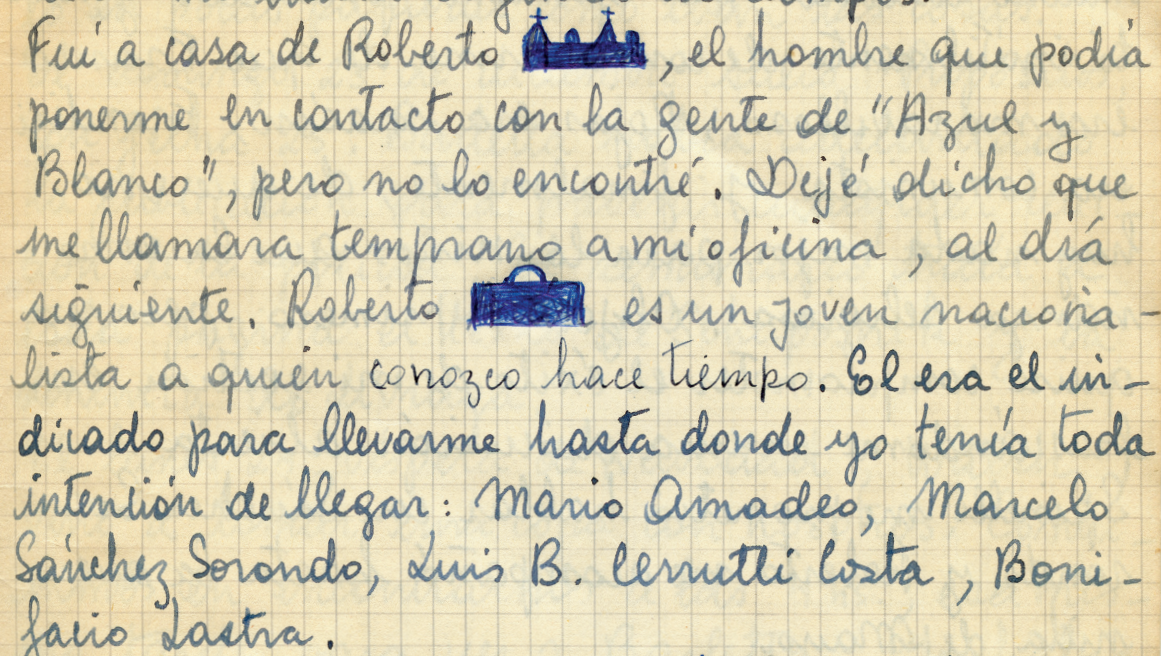 Fui a casa de Roberto , el hombre que podía
ponerme en contacto con la gente de "Azul y
Blanco", pero no lo encontré. Dejé dicho que
me llamara temprano a mi oficina, al día
siguiente. Roberto es un joven naciona-
lista a quien conozco hace tiempo. El era el in-
dicado para llevarme hasta donde yo tenía toda
intención de llegar: Mario Amadeo, Marcelo
Sánchez Sorondo, Luis B. Cerrutti Costa, Boni-
facio Lastra.